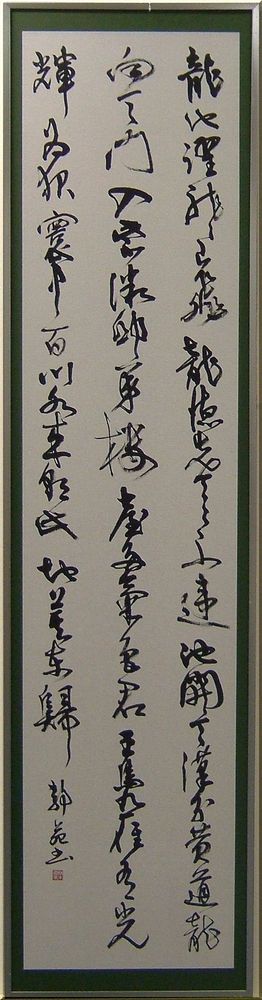 龍池躍龍〻已飛龍德先天〻不違池開天漢分黄道龍
向天門入紫微邸第樓臺多氣色君王鳧雁有光
輝為報寰中百川水来朝此地莫東歸